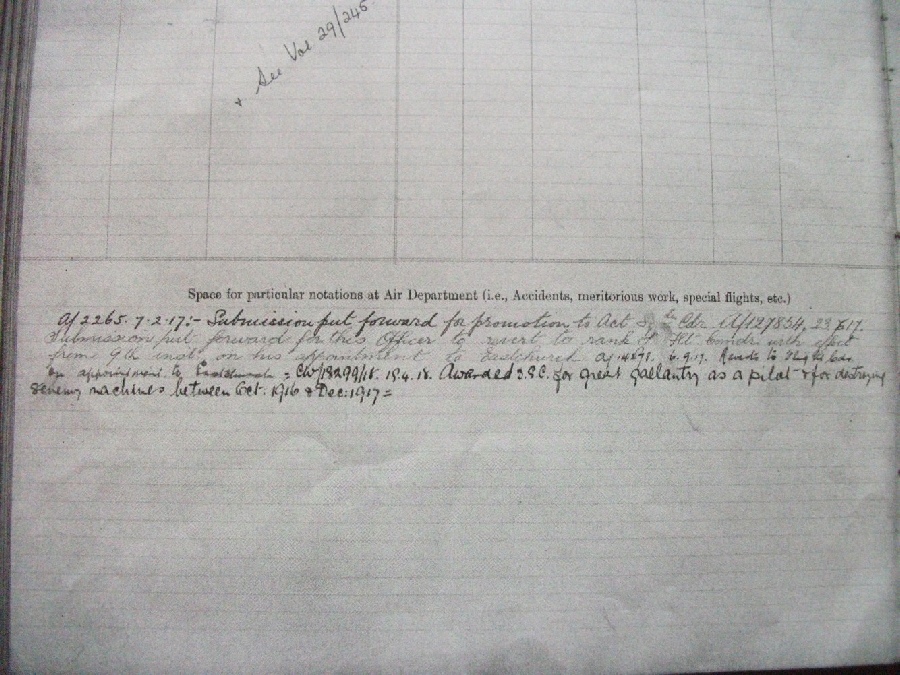 + See Vol 29/245
Space for particular notations at Air Department (i.e., Accidents, meritorious work, special flights, etc.)
A/2265. 7-2-17:- Submission put forward for promotion to Act Cdr A/127834,
Submission put forward for this Officer to revert to rank of Flt Comdr with effect
from 9th inst. on his appointment to Eastchurch
on appointment to Eastchurch = CW/13299/18. 18.4.18. Awarded D.S.C. for great gallantry as a pilot & for destroying
enemy machines between Oct. 1916 & Dec: 1917 =